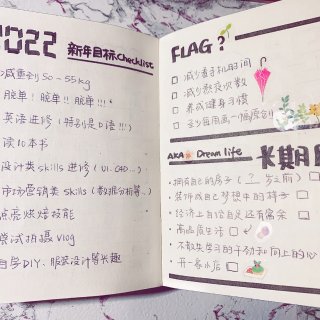 2022
新年目标checklist
减重到50-55kg
脱单！脱单!! 脱单!!!
英语进修（特别是口语!!!）
读10本书
设计类skills进修（UI. C4D...）
市场营销类skills（数据分析等..）
点亮烘焙技能
尝试拍摄Vlog
自学DIY、服装设计等兴趣
FLAG？
减少看手机时间
减少熬夜次数
养成健身习惯
至少每周画一幅原创
AKA Dream life
长期
拥有自己的房子（？岁之前）
装饰成自己梦想中的样子
经济上自给自足还有富余
高品质生活
不断学习的干劲和向上的心
开一家小店